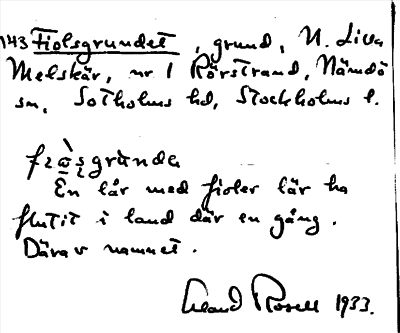 143 Fiolsgrundet, grund, N. Lilla
Melskär, nr 1 Rörstrand, Nämdö
sn, Sotholms hd, Stockholms l.
En lår med fioler lär ha
flutit i land där en gång.
Därav namnet.
Rosell 1933.